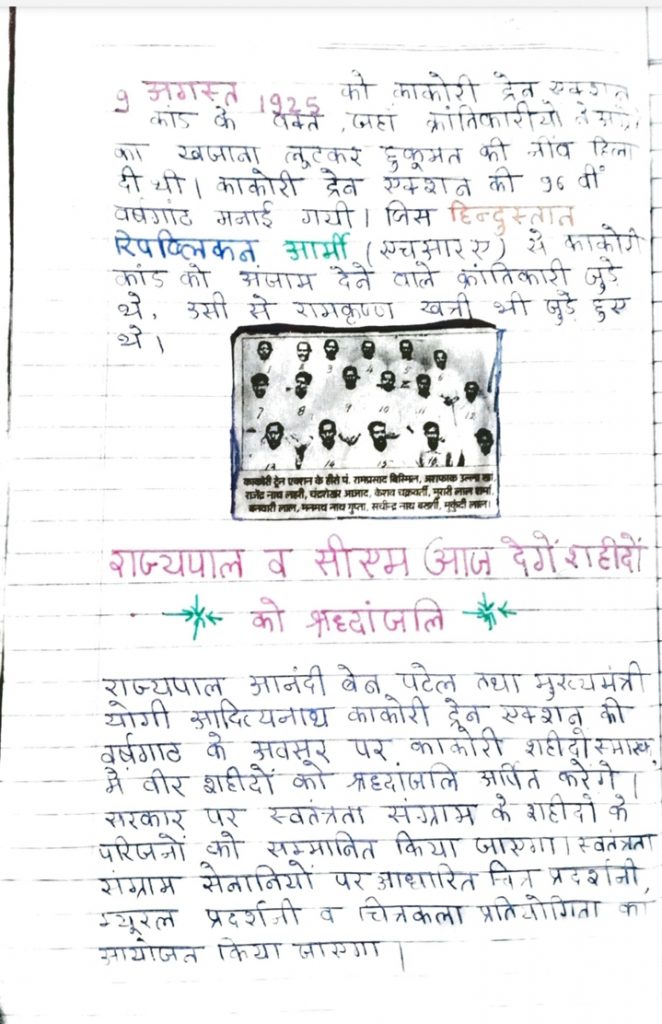 9 अगस्त 1925 को काकोरी ट्रेन एक्शन
कांड के वक्त, जहां क्रांतिकारीयो ने
का खजाना लुटकर हुकूमत की नींव हिला
दी थी। काकोरी ट्रेन एक्शन की 96 वीं
वर्षगांठ मनाई गयी। जिस हिन्दुस्तान
रिपब्लिकन आर्मी (एचआरए) से काकोरी
कांड को अंजाम देने वाले क्रांतिकारी जुड़े
थे, उसी से रामकृष्ण खत्री भी जुड़े हुए
थे।
1 2 3 4 5 6
7 8 9 10 11 12
13 14 15 16
काकोरी ट्रेन एक्शन के हीरो पं. रामप्रसाद बिस्मिल, अशफाक उल्ला खां
राजेंद्र नाथ लहरी, चंद्रशेखर आजाद, केशव चक्रवर्ती, मुरारी लाल शर्मा,
बनवारी लाल, मनमथ नाथ गुप्ता, सचीन्द्र नाथ बख्शी, मुकुंदी लाल।
राज्यपाल व सीएम आज देगें शहीदों
को श्रध्दांजलि
राज्यपाल आनंदी बेन पटेल तथा मुख्यमंत्री
योगी आदित्यनाथ काकोरी ट्रेन एक्शन की
वर्षगाठ के अवसर पर काकोरी शहीदो स्मारक
में वीर शहीदों को श्रध्दांजलि अर्पित करेंगे।
सरकार पर स्वतंत्रता संग्राम के शहीदों के
परिजनों को सम्मानित किया जाएगा। स्वतंत्रता
संग्राम सेनानियों पर आधारित चित्र प्रदर्शनी,
म्यूरल प्रदर्शनी व चित्रकला प्रतियोगिता का
आयोजन किया जाएगा।